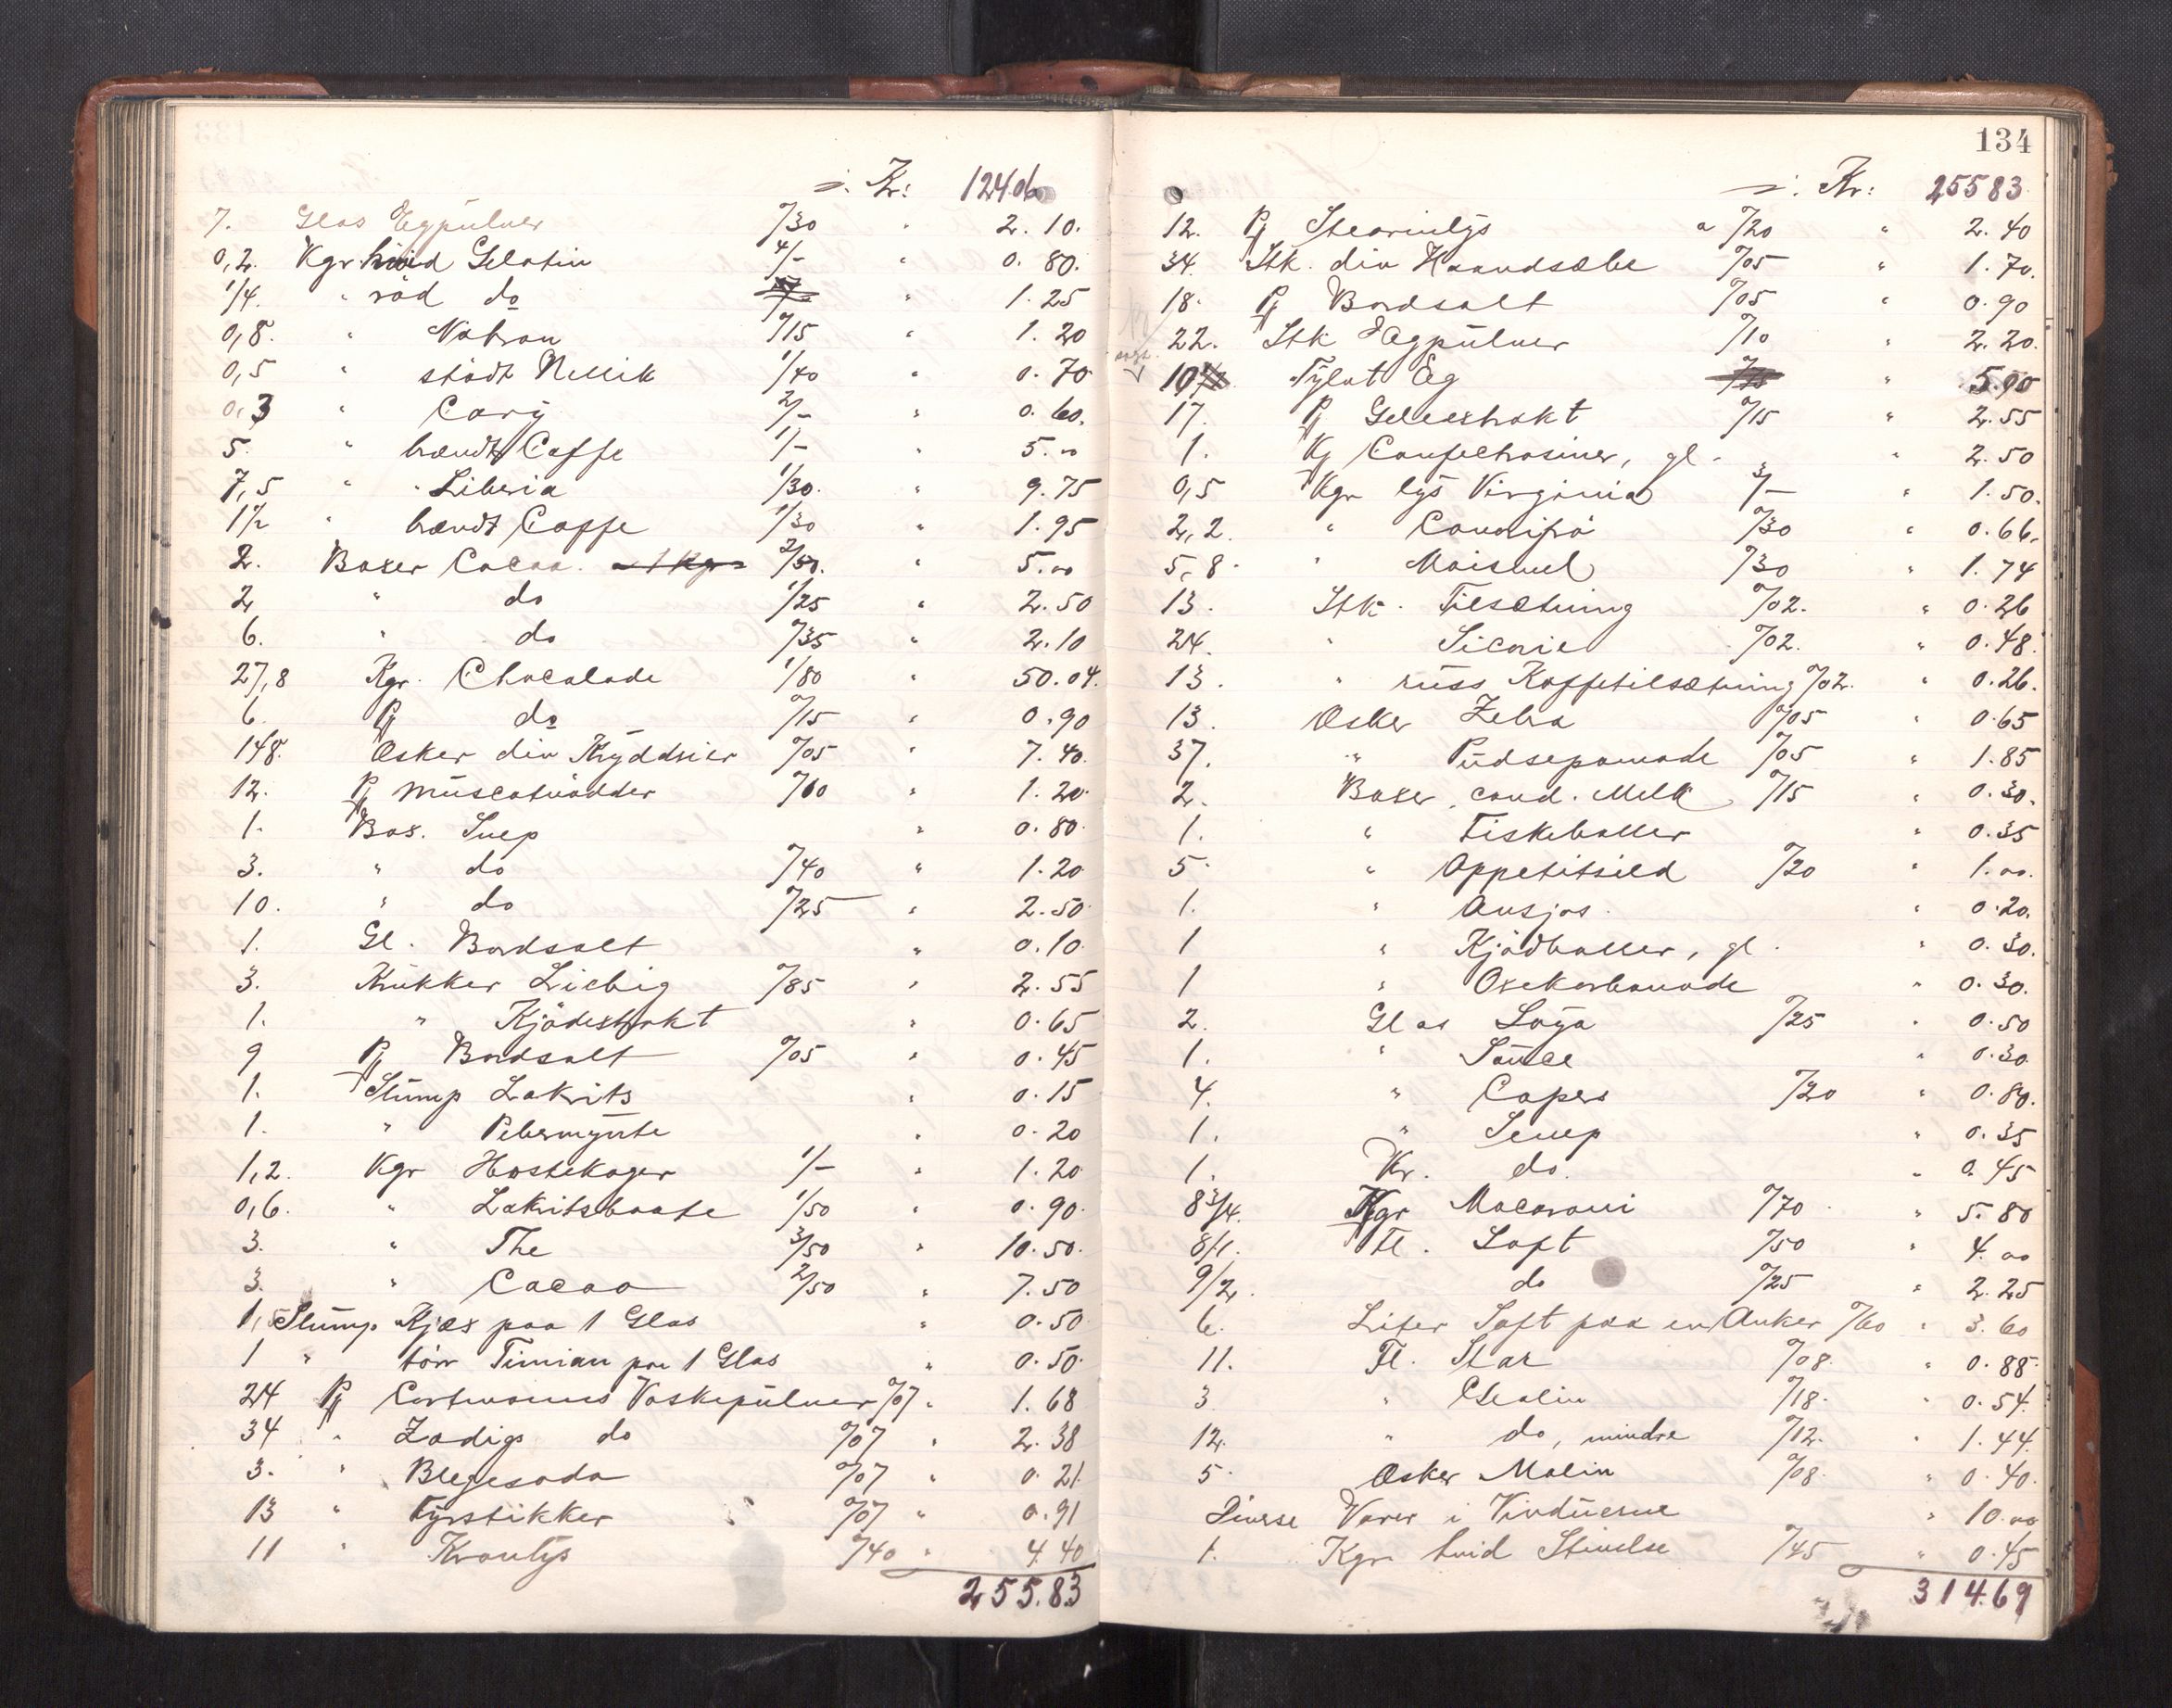 Kr: 124.06
7. Glas Egpulver %30 " 2.10.
0,2. Kgr hvid Gelatin 4/- " 0.80.
1/4. " röd do " 1.25
0,8. " Natron %15 " 1.20
0,5 " stödt Nellik 1/40 " 0.70
0,3 " Cary 2/- " 0.60.
5. " brændt Caffe 1/- " 5.00
7,5 " " Liberia 1/30. " 9.75
1 1/2 " brændt Caffe 1/30 " 1.95
2. Boxer Cacao. a 1 Kgr 2/50. " 5.00
2 " do 1/25 " 2.50
6. " do %35 " 2.10
27,8 Kgr. Chocolade 1/80 " 50.04.
6. Pj do %15 " 0.90
148. Æsker div Kryddrier %05 " 7.40.
12. Pj Muscatnödder %10 " 1.20.
1. Box. Snep " 0.80.
3. " do %40 " 1.20
10. " do %25 " 2.50
1. Gl. Bordsalt " 0.10.
3. Krukker Liebig %85 " 2.55
1. " Kjödextrakt " 0.65
9 Pj Bordsalt %05 " 0.45
1. Slump Lakrits " 0.15
1. " Pebermynte " 0.20
1,2. Kgr Hostekager 1/- " 1.20
0,6. " Lakritsbaate 1/50 " 0.90.
3. " The 3/50 " 10.50.
3. " Cacao 2/50 " 7.50
1, Slump Kjæx paa 1 Glas " 0.50
1 " törr Timian paa 1 Glas " 0.50.
24 Pj Vaskepulver %07 " 1.68
34 " Zadigs do %07 " 2.38
3. " Blegesoda %07 " 0.21.
13 " Fyrstikker %07 " 0.91
11 " Kronlys %40 " 4.40
255.83
134
Kr: 255.83
12. Pj Stearinlys a %20 " 2.40
34. Stk. div Haandsæbe %05 " 1.70.
18. Pj Bordsalt %05 " 0.90
22. Stk Egpulver %10 " 2.20.
10 Tylvt Eg " 5.00
17. Pj Geleextrakt %15 " 2.55
1. Kj Confectrosiner, gl. " 2.50
0,5 Kgr lys Virginia 3/- " 1.50.
2,2. " Canarifrö %30 " 0.66.
5,8. " Maismel %30 " 1.74
13. Stk. Tilsætning %02. " 0.26
24. " Sicorie %02. " 0.48.
13. " russ Kaffetilsætning %02. " 0.26.
13. Æsker Zebra %05 " 0.65
37. " Pudsepomade %05 " 1.85
2. Boxer cond. Melk %15 " 0.30.
1. " Fiskeboller " 0.35
5. " Appetitsild %20 " 1.00.
1. " Ansjos. " 0.20.
1 " Kjödboller, gl. " 0.30.
1 " Oxekarbonade " 0.30.
2. Glas Soya %25 " 0.50
1. " Sauce " 0.30
4. " Capers %20 " 0.80.
1. " Senep " 0.35
1. Kr. do. " 0.45
8 3/4. Kgr Macaroni %70 " 5.80
8/1. Fl. Saft %50 " 4.00
9/2. do %25 " 2.25
6. Liter Saft paa en Anker %60 " 3.60
11. Fl. Star %08. " 0.88.
3 " %18. " 0.54.
12. " do, mindre %12. " 1.44.
5. Æsker Malin %08. " 0.40.
Diverse Varer i Vinduerne " 10.00
1. Kgr. hvid Stivelse %45 " 0.45
314.69